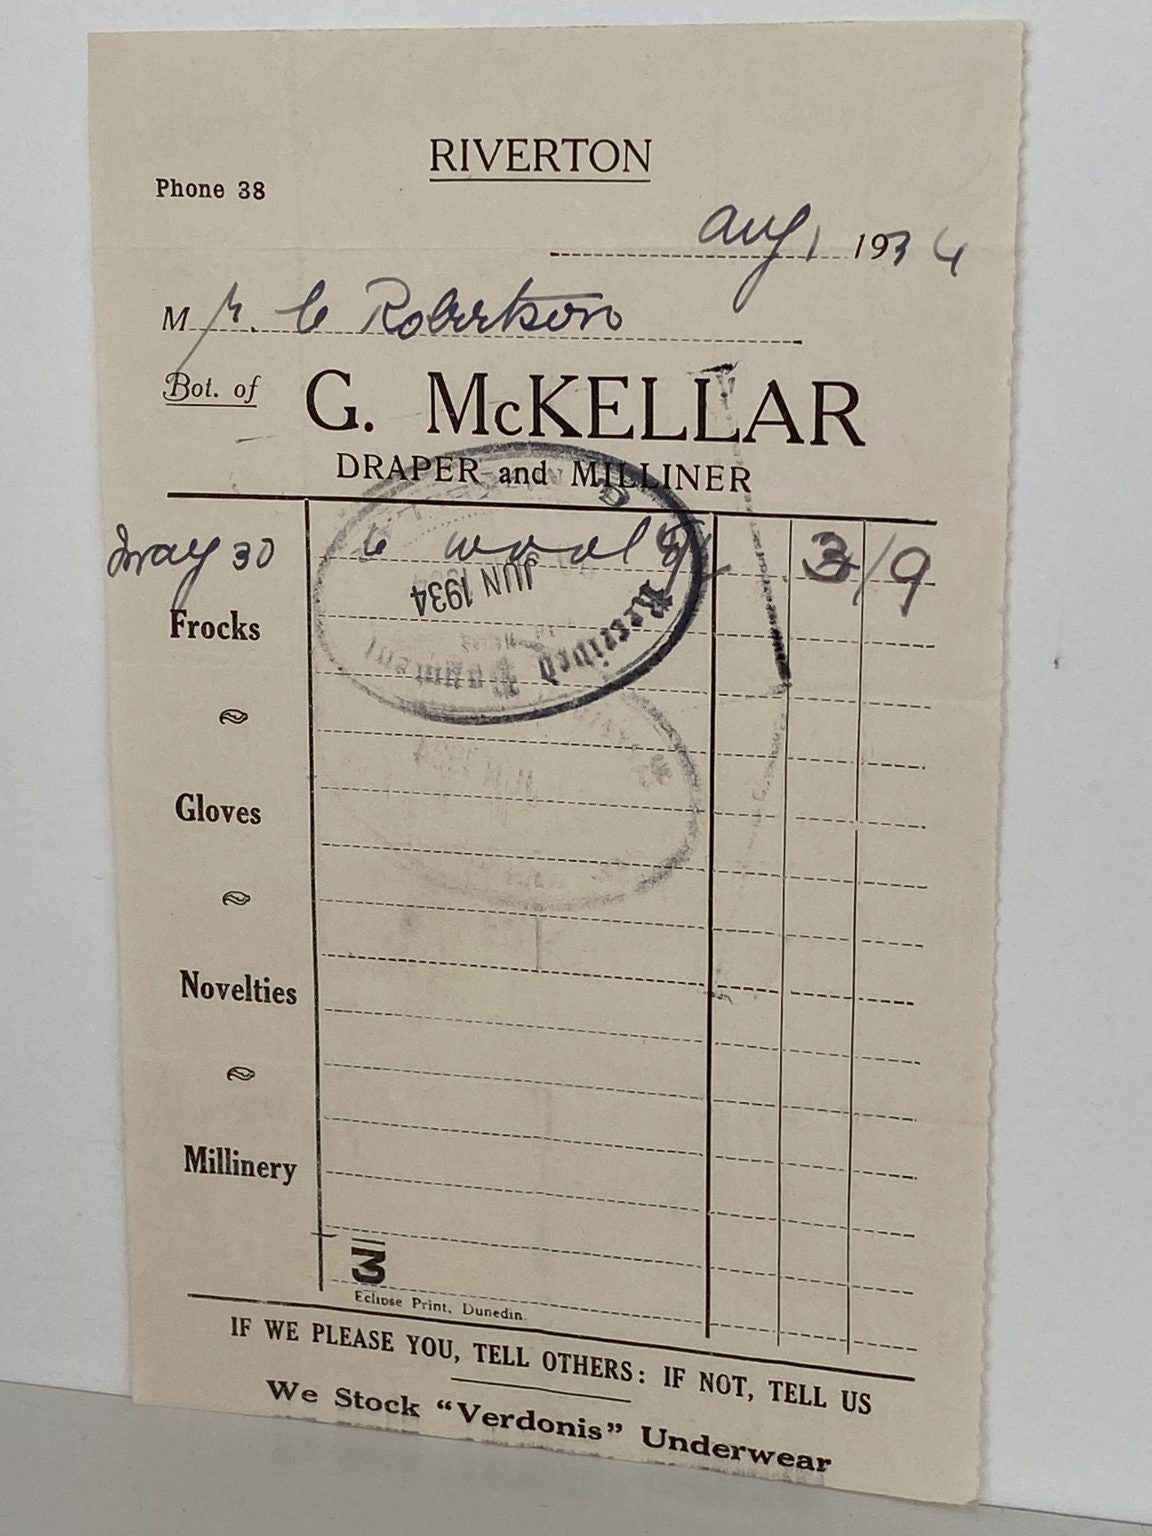 RIVERTON
Phone 38
Aug 1 1934
Mr. C Robertson
Bot. of G. McKELLAR
DRAPER and MILLINER
May 30 6 wool 3/9
JUN 1934
Received Payment
Frocks
JUN 1934
Gloves
Novelties
Millinery
3
Eclipse Print, Dunedin.
IF WE PLEASE YOU, TELL OTHERS: IF NOT, TELL US
We Stock "Verdonis" Underwear